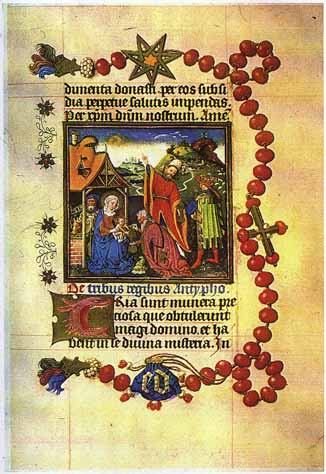 dumenta donasti. per eos subsi
dia perpetue salutis impendas.
Per xpm dnm nostrum. Ame
De tribus regibus Antypho.
Tria sunt munera pre
ciosa que obtulerunt
magi domino. et ha
bent in se divina misteria. In